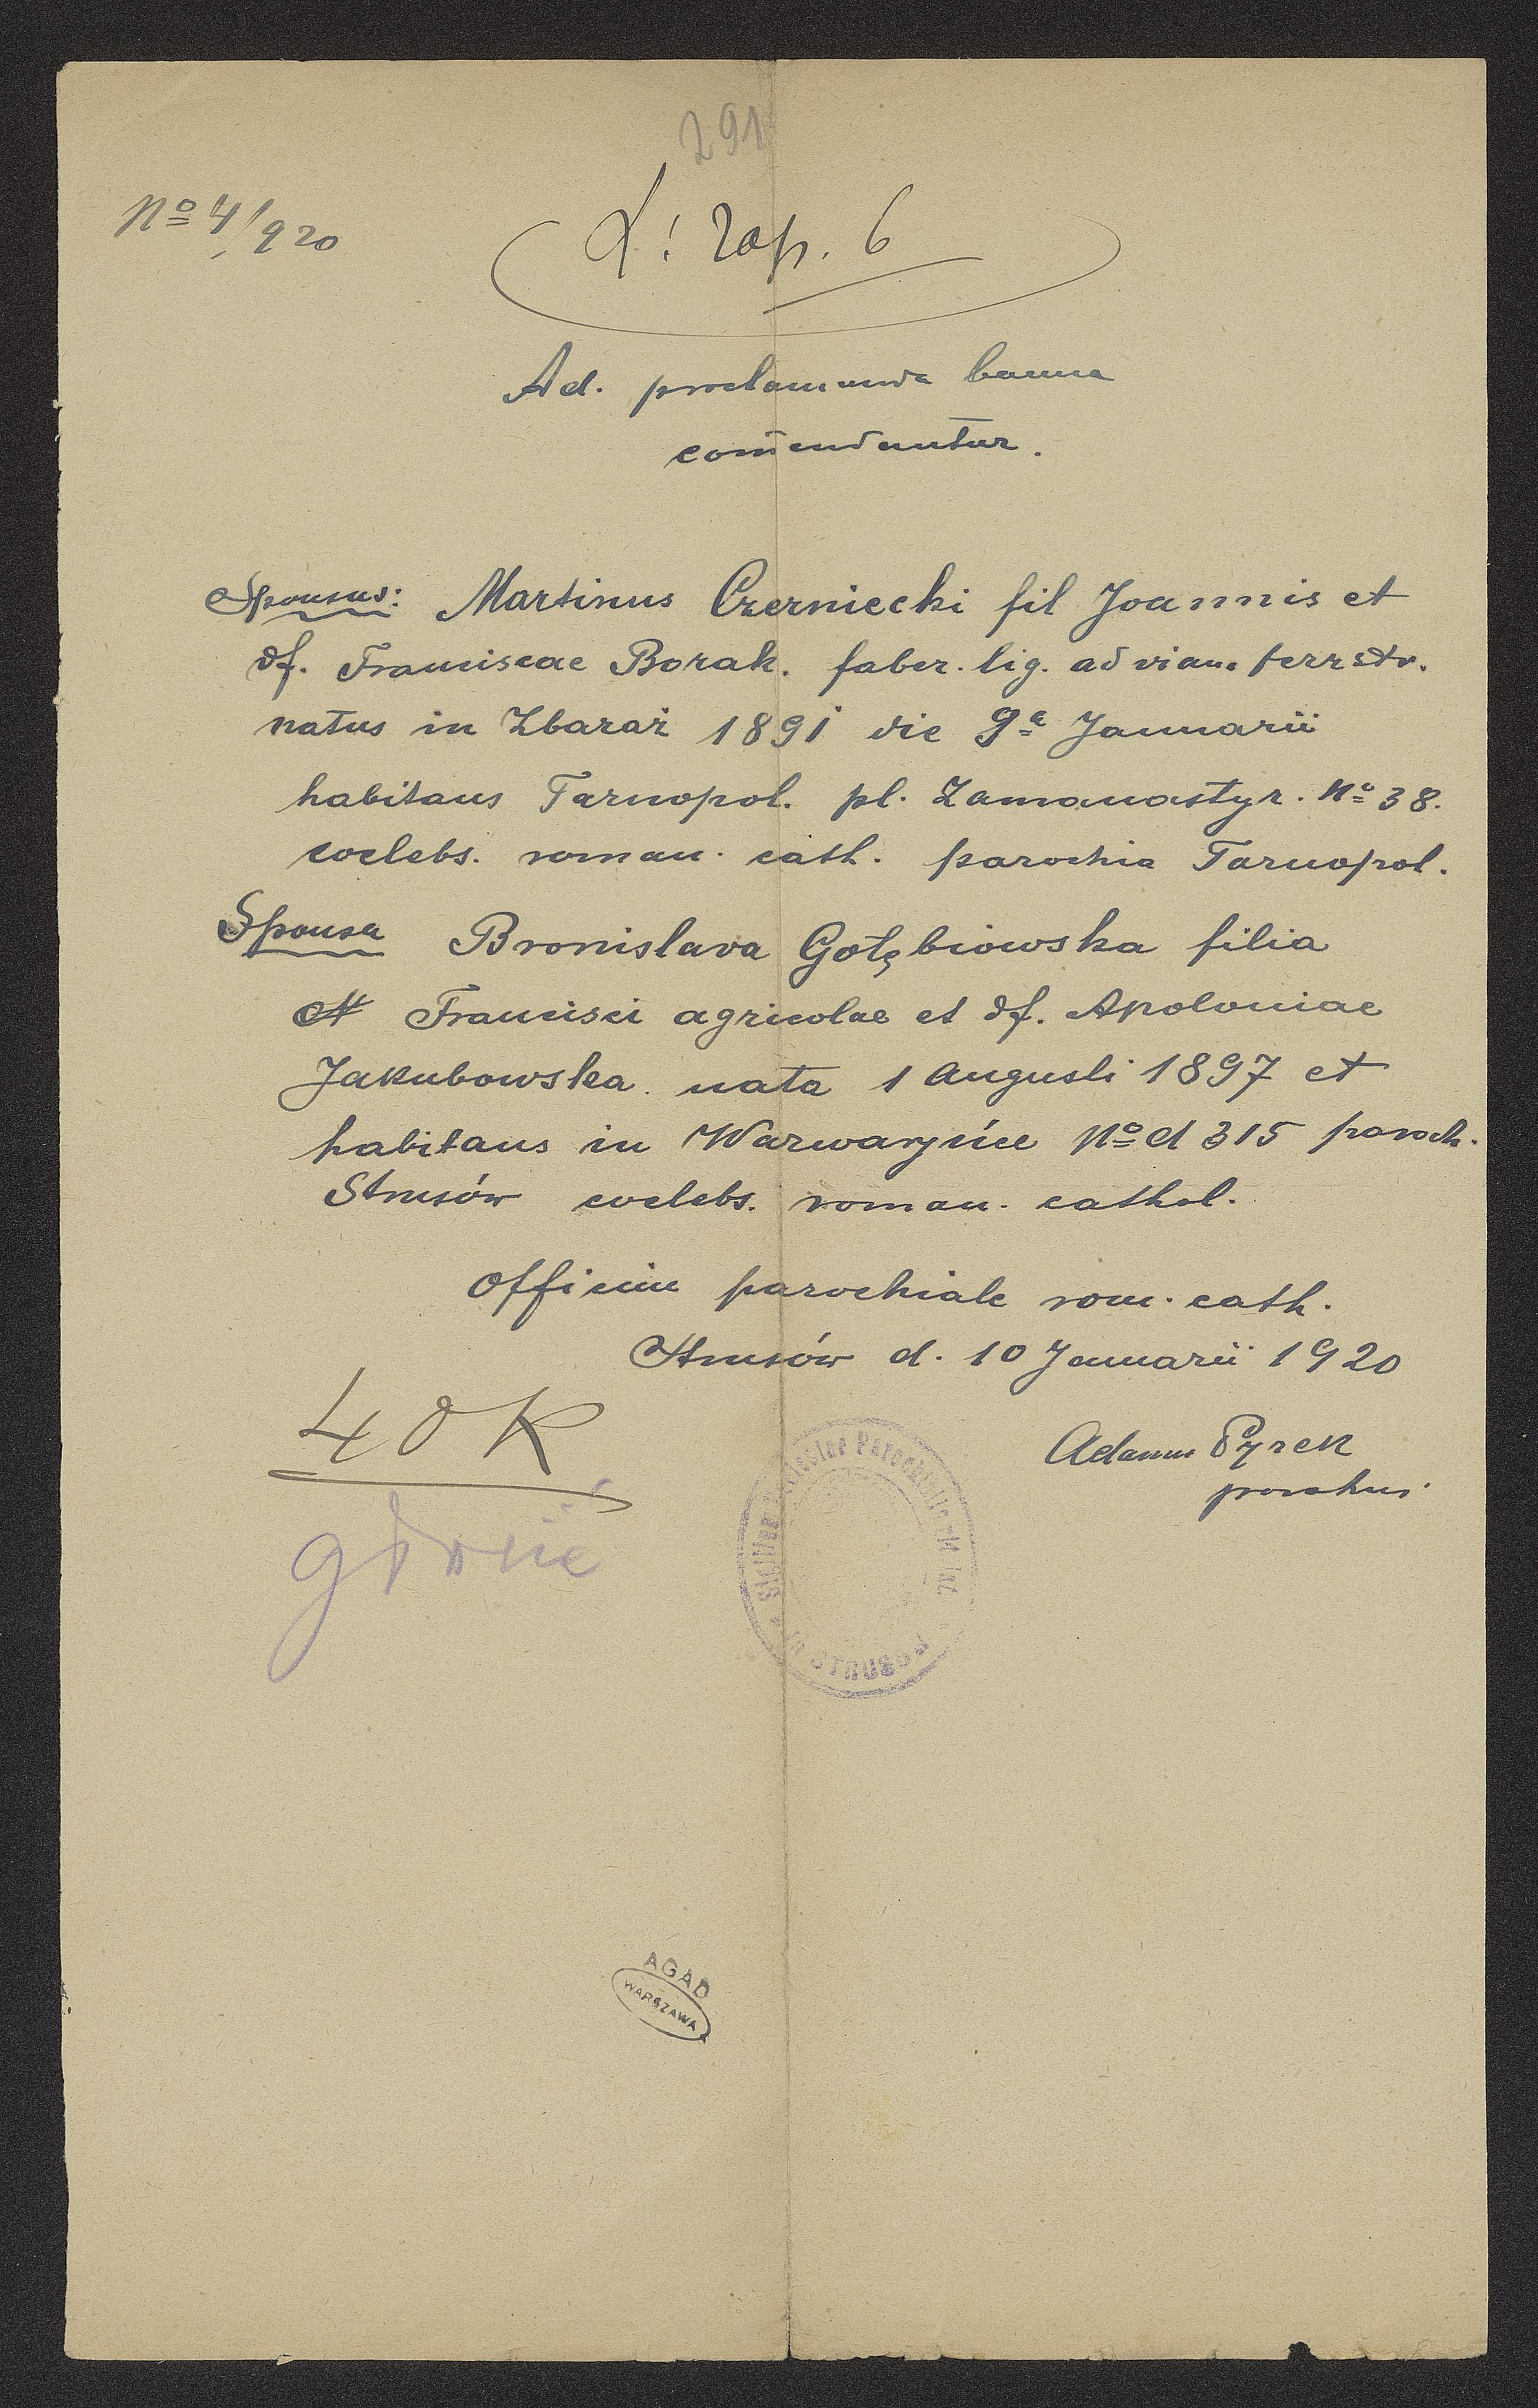 291
No 4/920
L: zap. 6
Ad. proclamanda banna
com̄endantur.
Sponsus: Martinus Czerniecki fil Joannis et
df. Franciscae Borak. faber. lig. ad viam ferrstr.
natus in Zbaraż 1891 die 9a Januarii
habitans Tarnopol. pl. Zamanastyr. No 38.
coelebs. roman. cath. parochia Tarnopol.
Sponsa Bronislava Gołębiowska filia
Francisci agricolae et df. Apoloniae
Jakubowska. nata 1 Augusti 1897 et
habitans in Warwaryńce No d 315 paroch.
Strusów coelebs. roman. cathol.
Officium parochiale rom. cath.
Strusów d. 10 Januarii 1920
40 K
Adamus Pyrek
parochus.
Sigillum Ecclesiae Parochialis rit. lat.
in STRUSÓW
AGAD
WARSZAWA